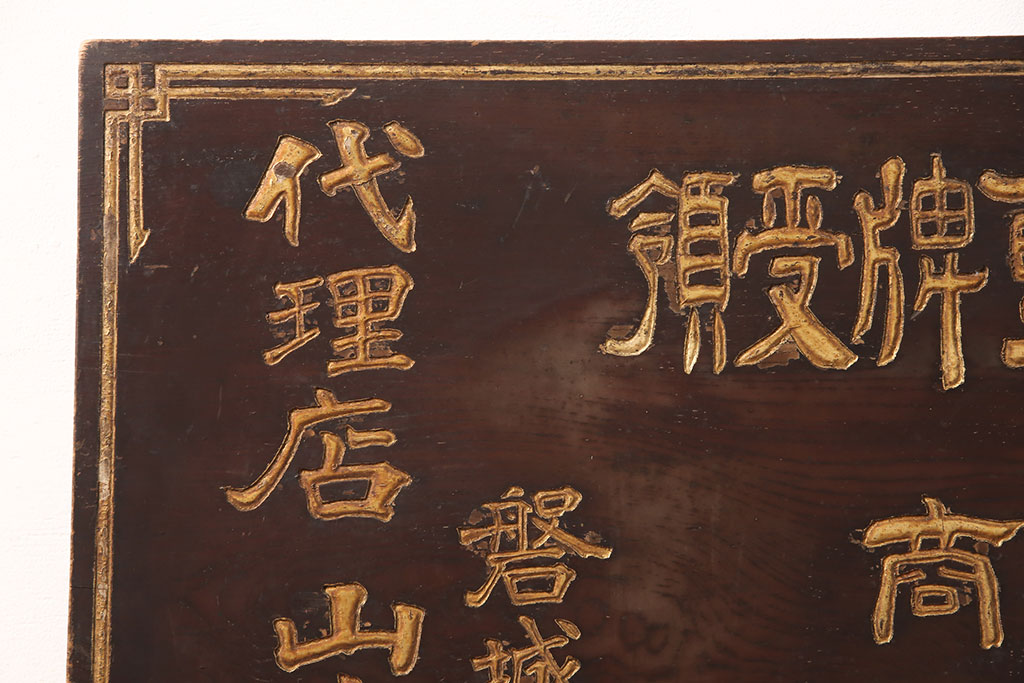 牌受領
商
磐城
代理店山